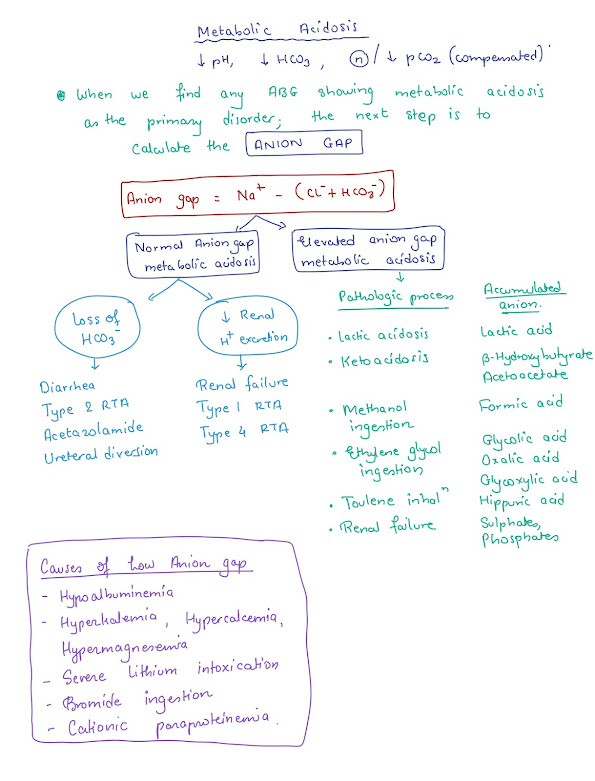 Metabolic Acidosis
↓ pH, ↓ HCO3, (n)/↓ pCO2 (compensated)
When we find any ABG showing metabolic acidosis
as the primary disorder; the next step is to
calculate the ANION GAP
Anion gap = Na⁺ - (Cl⁻ + HCO3⁻)
Normal Anion gap
metabolic acidosis
Elevated anion gap
metabolic acidosis
Loss of
HCO3⁻
↓ Renal
H⁺ excretion
Diarrhea
Type 2 RTA
Acetazolamide
Ureteral diversion
Renal failure
Type 1 RTA
Type 4 RTA
Pathologic process
Accumulated
anion.
• Lactic acidosis
Lactic acid
• Ketoacidosis
β-Hydroxybutyrate
Acetoacetate
• Methanol
ingestion
Formic acid
• Ethylene glycol
ingestion
Glycolic acid
Oxalic acid
Glyoxylic acid
• Toulene inhalⁿ
Hippuric acid
• Renal failure
Sulphates,
Phosphates
Causes of Low Anion gap
- Hypoalbuminemia
- Hyperkalemia, Hypercalcemia,
Hypermagnesemia
- Severe Lithium intoxication
- Bromide ingestion
- Cationic paraproteinemia.